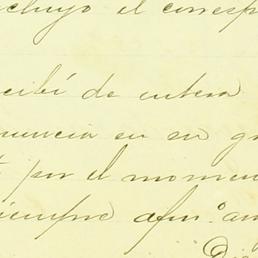 cluyo el corresp
cibí de entera
nuencia en su gr
por el momen
siempre afm.º am
Di